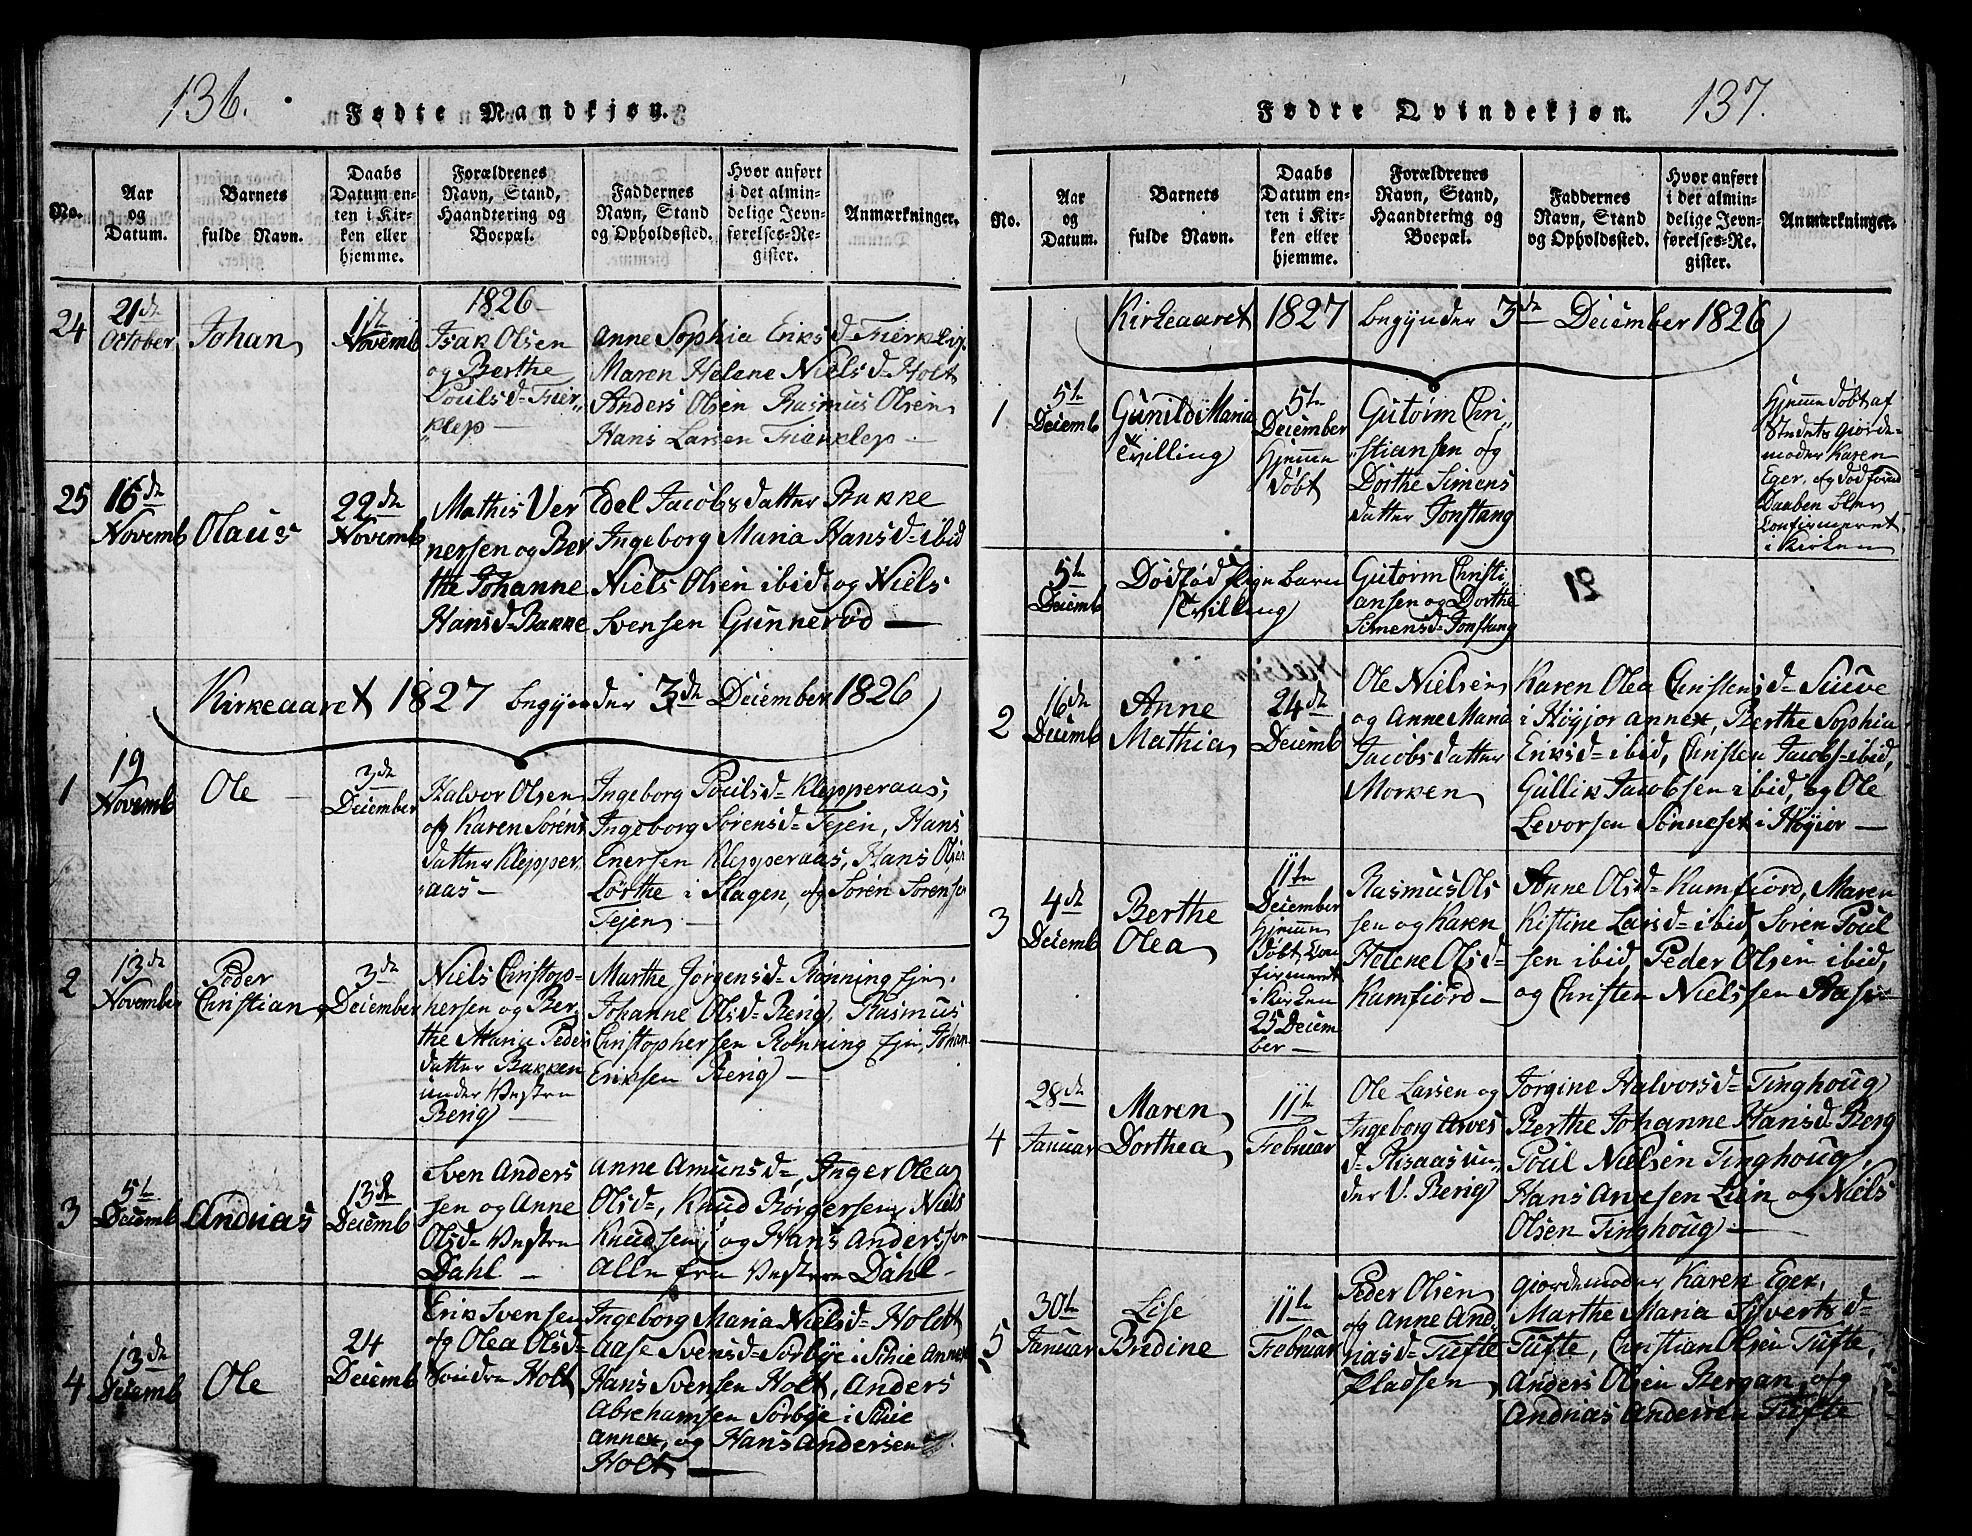 136.
Fødte Mandkjøn.
No.
Aar
og
Datum.
Barnets
fulde Navn.
Daabs
Datum en-
ten i Kir-
ken eller
hjemme.
Forældrenes
Navn, Stand,
Haandtering og
Boepæl.
Faddernes
Navn, Stand
og Opholdssted.
Hvor anført
i det almin-
delige Jevn-
førelses-Re-
gister.
Anmærkninger.
24
21de
October
Johan
1te
Novemb
1826
Isak Olsen
og Berthe
Poulsd- Trier-
klep
Anne Sophia Eriksd- Trierklep
Maren Helene Nielsd- Holt
Anders Olsen Rasmus Olsen
Hans Larsen Trierklep
25
16de
Novemb
Olaus
22de
Novemb
Mathis Ver
nersen og Ber
the Johanne
Hansd- Bakke
Edel Jacobsdatter Bakke
Ingeborg Maria Hansd- ibid
Niels Olsen ibid og Niels
Svensen Gunnerød
Kirkeaaret 1827 begynder 3de December 1826
1
19
Novemb
Ole
3de
December
Halvor Olsen
og Karen Sørens
datter Klepper
aas
Ingeborg Poulsd- Klepperaas,
Ingeborg Sørensd- Tejen, Hans
Enersen Klepperaas, Hans Olsen
Lørthe i Slagen, og Søren Sørensen
Tejen
2
13de
November
Peder
Christian
3de
December
Niels Christop-
hersen og Ber-
the Maria Peders
datter Bakken
under Vestre
Berig
Marthe Jørgensd- Rønning Ejn,
Johanne Olsd- Berig, Rasmus
Christophersen Rønning Ejn, Johan
Eriksen Berig
3
5te
Decemb
Andreas
13de
Decemb
Sven Anders
sen og Anne
Olsd- Vestre
Dahl
Anne Amunsd-, Inger Olea
Olsd-, Knud Børgersen, Niels
Knudsen, og Hans Anderssen
Alle fra Vestre Dahl
4
13de
Decemb
Ole
24
Decemb
Erik Svensen
og Olea Olsd-
Nordre Holt
Ingeborg Maria Nielsd- Holdt
Aase Svensd- Sørbye i Schie Annex
Hans Svensen Holt, Anders
Abrehamsen Sørbye i Schie
Annex, og Hans Andersen
Holt
Fødte Qvindekjøn.
137.
No.
Aar
og
Datum.
Barnets
fulde Navn.
Daabs
Datum en-
ten i Kir-
ken eller
hjemme.
Forældrenes
Navn, Stand,
Haandtering og
Boepæl.
Faddernes
Navn, Stand
og Opholdssted.
Hvor anført
i det almin-
delige Jevn-
førelses-Re-
gister.
Anmærkninger.
Kirkeaaret 1827 begynder 3de December 1826
1
5te
Decemb
Gunild Maria
Tvilling
5te
December
hjemme
døbt
Gutorm Chri-
stiansen og
Dorthe Simens
datter Jonstang
hjemme døbt af
Stedets giorde-
moder Karen
Eger, og død førend
Daaben blev
confirmeret
i Kirken
5te
Decemb
Dødfød Pigebarn
Tvilling
Gutorm Christi-
ansen og Dorthe
Simensd- Jonstang
2
16de
Decemb
Anne
Mathia
24de
Decemb
Ole Nielsen
og Anne Maria
Jacobsdatter
Morken
Karen Olea Christensd- Sueve
i Høyjor annex, Berthe Sophia
Eriksd- ibid, Christen Jacobs- ibid,
Gullik Jacobsen ibid, og Ole
Levorsen Sønneset i Høyjor
3
4de
Decemb
Berthe
Olea
11te
December
hjemme
døbt, con
firmeret
i Kirken
25 Decem
ber
Rasmus Ols
sen og Karen
Helene Olsd-
Kamfiord
Anne Olsd- Kamfiord, Maren
Kistine Larsd- ibid, Søren Poul
sen ibid, Peder Olsen ibid,
og Christen Nielssen
4
28de
Januar
Maren
Dorthea
11te
Februar
Ole Larsen og
Ingeborg Arves
d- Risaas un-
der V. Berig
Jørgine Halvorsd- Tinghoug
Berthe Johanne Hansd- Berg
Poul Nielsen Tinghoug,
Hans Arvesen Lien og Niels
Olsen Tinghoug
5
30te
Januar
Lise
Bredine
11te
Februar
Peder Olsen
og Anne And-
reasd- Tufte
Pladsen
giordemoder Karen Eger,
Marthe Maria Syvertsd-
Tufte, Christian Olsen Tufte,
Anders Olsen Bergan, og
Andreas Andersen Tufte